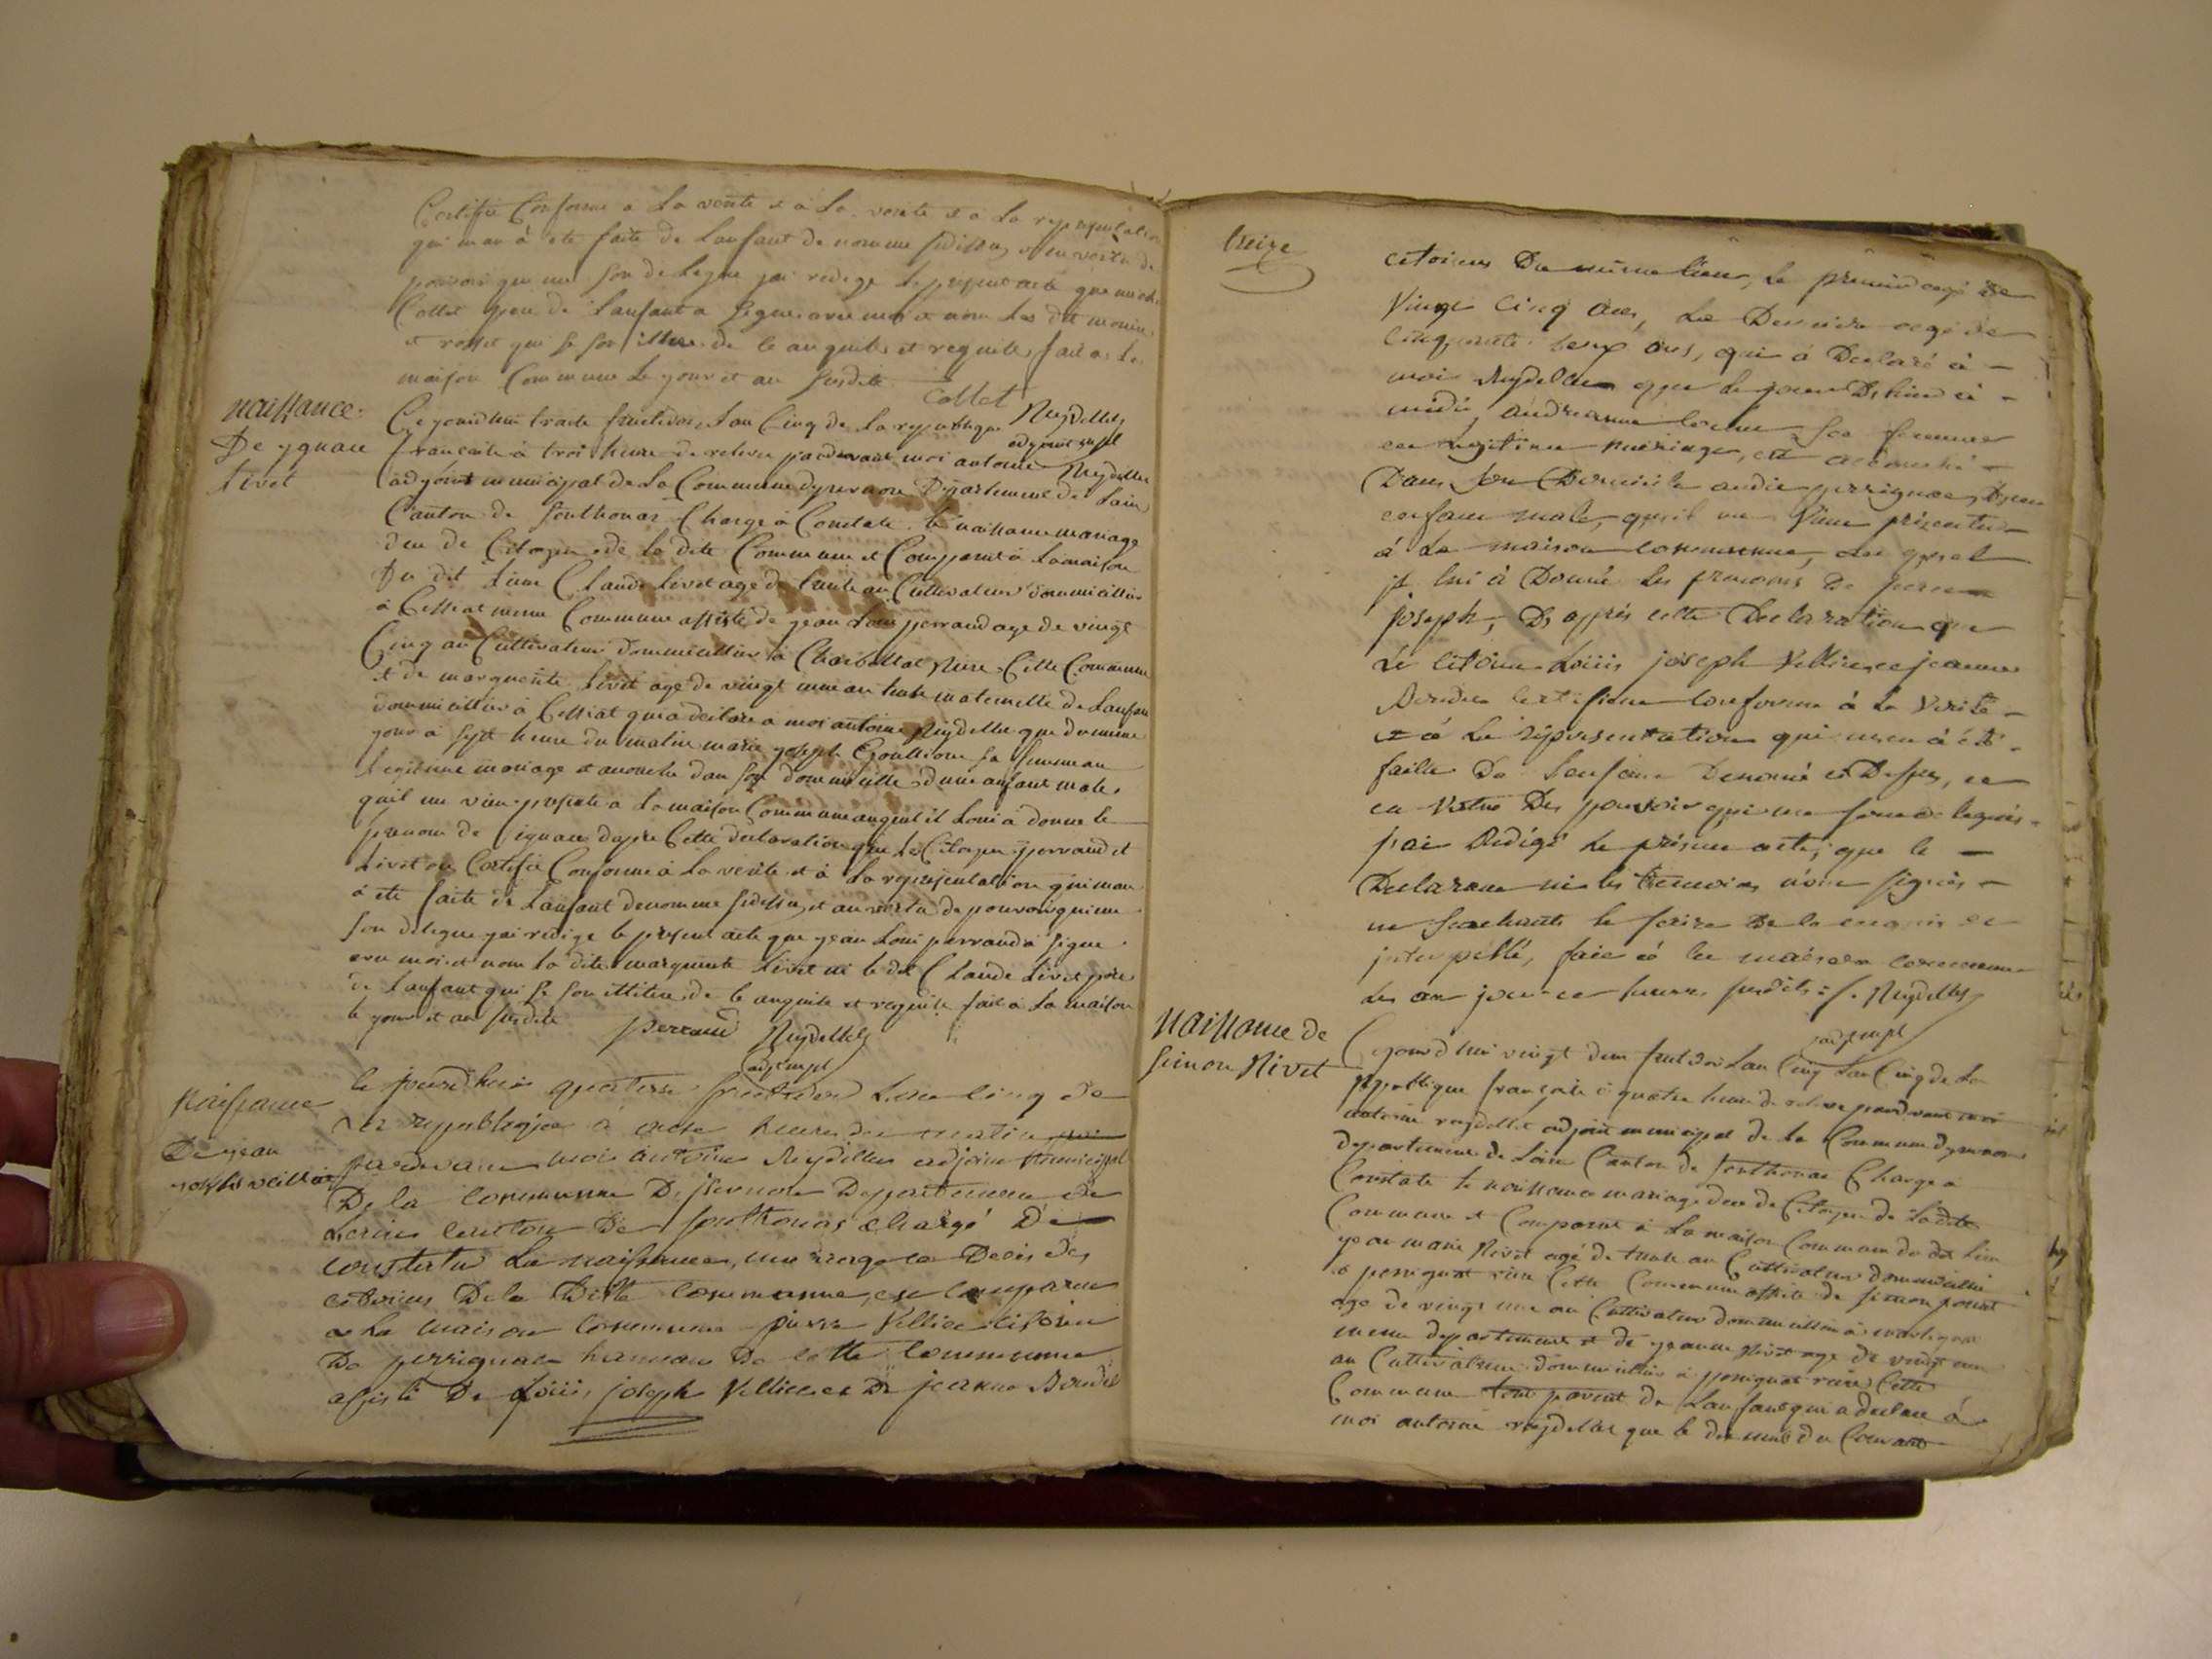 Certifie Conforme a La verite et a La verite et a La representation
qui man à ete faite de Lanfant de nomme sudissu et en vertu de
pouvoir qui me son delegue jai redige le present acte que
Collet pere de Lanfant a signe avec moi et non les dit
et qui se son de le anquite et requite fait a La
maison Commune Le your et an susdite
Collet Reydellet
adjoint mpl
naissance
De ygnace
Livet
Ce yourdhui traite fructidor Lan Cinq de La republique
francaise à troi heure de releve pardevant moi antoine Reydellet
adjoint municipal de La Commune dysernore Departement de Lain
Canton de sonthonas Charge à Constate le naissance mariage
de Citoyen de la dite Commune et Comparut à La maison
Du dit Lieu Claude Livet age de trante an Cultivateur dommicillier
à Cessiat meme Commune assiste de jean Loui perraud age de vingt
Cinq an Cultivateur dommicillier à Charbillat Riere Cette Commune
et de marguerite Livet age de vingt une an tante maternelle de Lanfan
dommicillier à Cessiat qui a declare a moi antoine Reydellet que du meme
your à sept heure du matin marie yoseph sa femme an
Legitime mariage et acouche dan son dommicille dune anfant male
quil me vien presente a La maison Commune auquel il Loui a donne le
prenom de ignace dapre Cette declaration que Le Citoyen perraud et
Livet on Certifie Conforme à La verite et à La representation qui man
à ete faite de Lanfant denomme sudissu et an vertu de pouvoir qui me
son delegue jai redige le present acte que yean Loui perraud à signe
avec moi et non La dite marguerite Livet ni le dit Claude Livet pere
de Lanfant qui se son illitere de le anquite et requite fait à La maison
le your et an susdite perraud Reydellet
adj mpl
Naissance
De jean
joseph veillier
le jourdhui quatorse fructidor Lan cinq de
La republique à onse heure du matin
pardevant moi antoine Reydellet adjoint municipal
De la commune Disernore Departement de
Lain canton De sonthonas chargé De
constater La naissance, mariage et Deces des
citoiens De la Ditte commune, est comparu
a La maison Commune pierre Vellier citoien
De perrignac hameau De cette Commune
assisté De Loüis joseph Vellier et De jeanne
treize
citoiens Du même lieu, Le premier agé de
Vingt cinq ans, La Derniere agé de
cinquante Deux ans, qui à Declaré à
moi Reydellet que le jour Dhier à
midi, andreanne sa femme
en Legitime mariage, est accouché
Dans son Domicile audit perrignac, Dun
enfant male, quil me Vient présenter
à La maison commune, au quel
il lui à Donné les prenoms De jean
joseph, D'apprés cette Declaration que
Le citoien Loüis joseph Vellier et jeanne
certifient conforme à La Verité
et à La représentation qui men à été
faite De Lenfant Denommé ci Dessus, et
en Vertu Des pouvoir qui me sont delegués
j'ai Rédigé Le présent acte, que le
Declarant ni les témoins n'ont signés
ne sachants le faire De la enquis et
interpellé, fait à la maison commune
Les an jour et heure susdits. Reydellet
adj mpl
Naissance de
Simon Rivet
Ce yourdhui vingt dun fructidor Lan Cinq Lan Cinq de La
Republique francaise à quatre heure de releve pardevant moi
antoine reydellet adjoint municipal de la Commune dysernore
departement de Lain Canton de sonthonas Charge à
Constate le naissance mariage de Citoyen de La dite
Commune et Comparut à La maison Commune du dit Lieu
yean marie Rivet agé de trante an Cultivateur dommicillier
à perrignat riere Cette Commune assiste de simon ponset
age de vingt une an Cultivateur dommicillier à
meme departement et de yeanne Rivet age de vingt une
an Cultivateur dommicillier à perrignat riere Cette
Commune tout parent de Lanfant qui a declare à
moi antoine reydellet que le du Courant